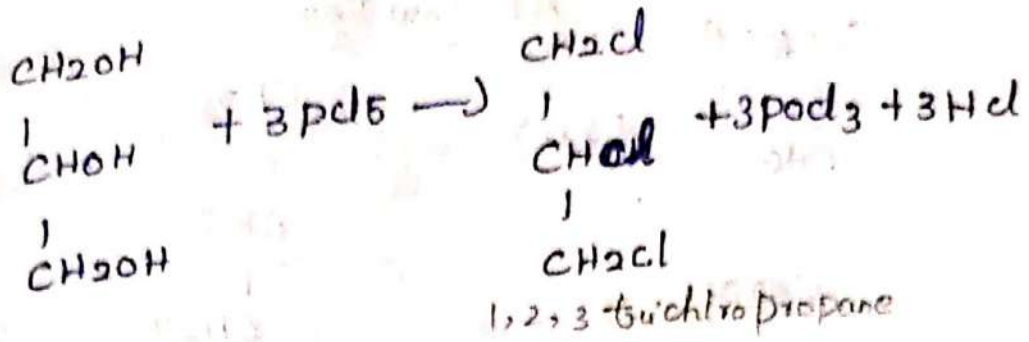 CH2OH
|
CHOH + 3 pcl5 →
|
CH2OH
CH2Cl
|
CHCl + 3pocl3 + 3Hcl
|
CH2Cl
1,2,3 trichloropropane